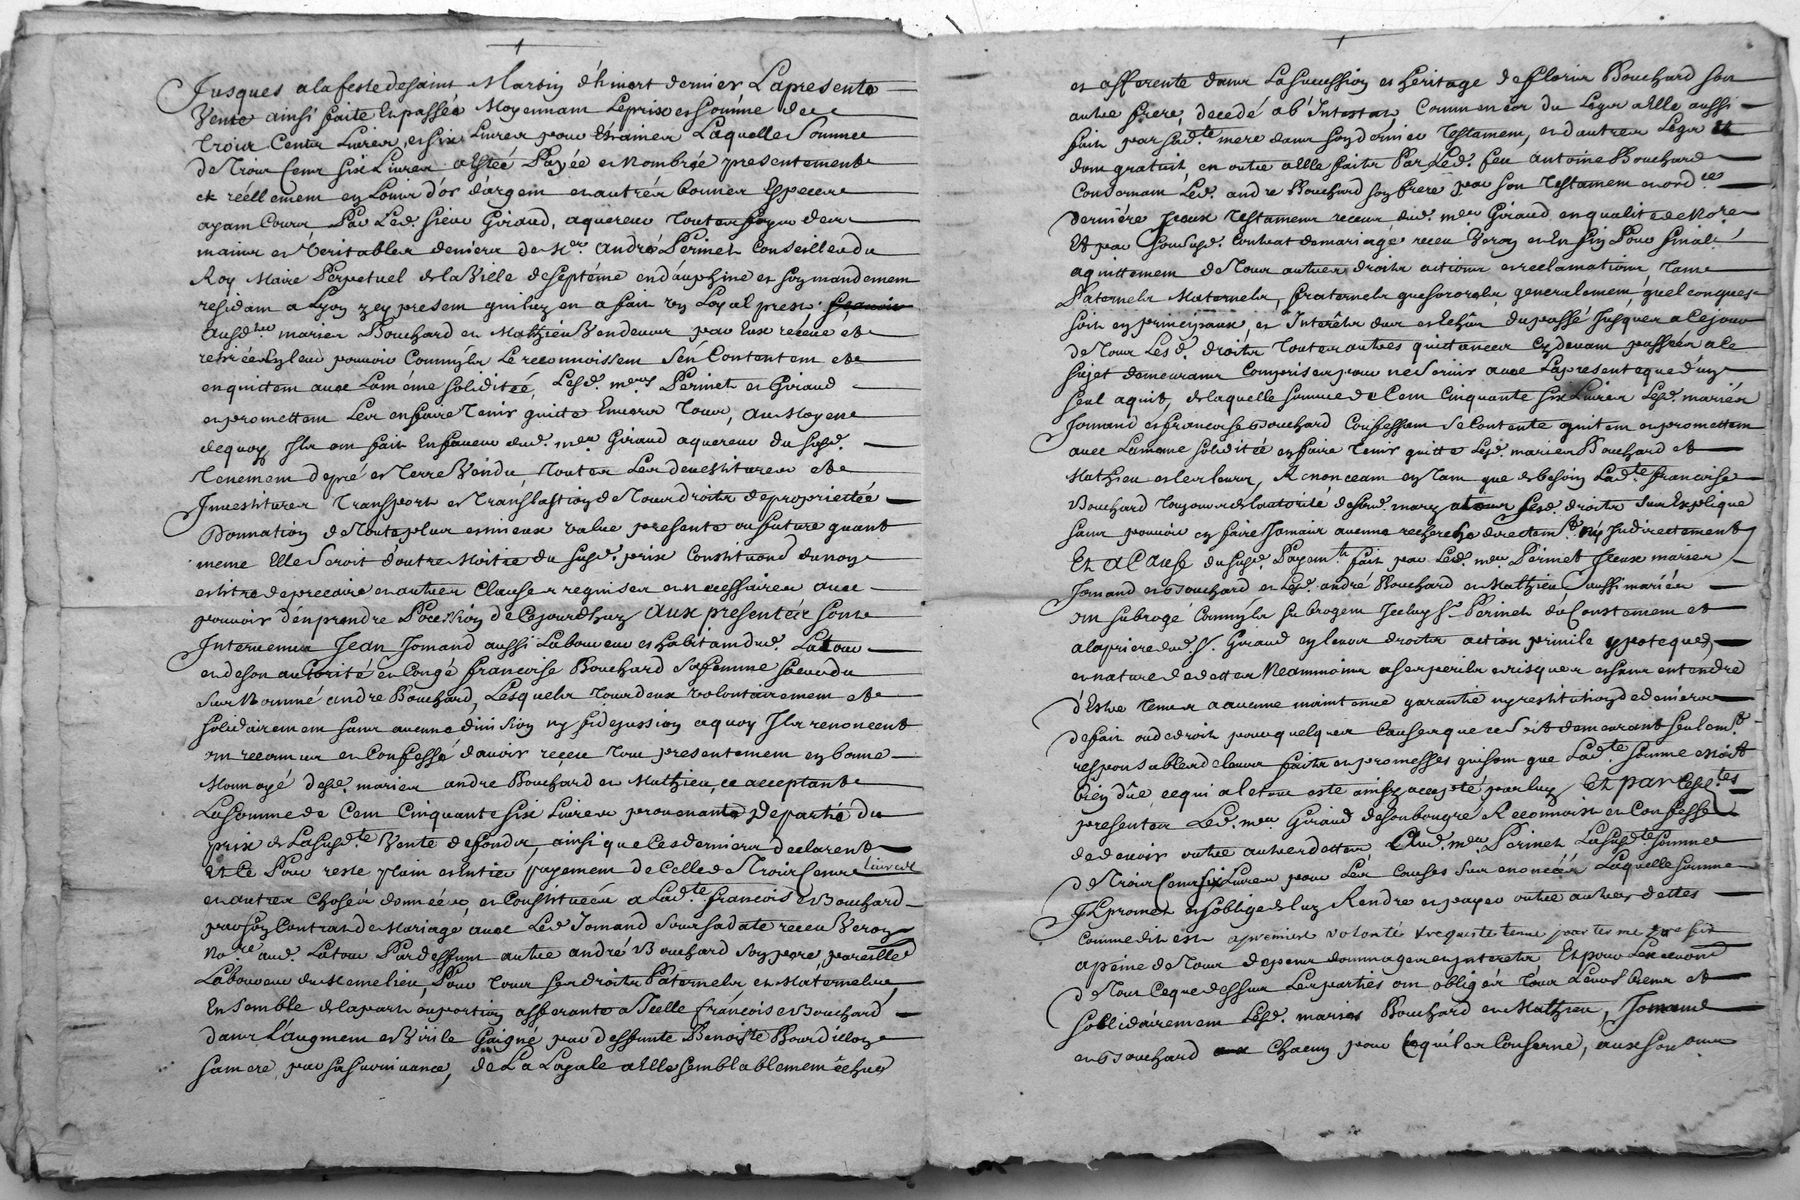 Jusques a la feste de saint Martin d'hivert dernier La presente
Vente ainsi faite et passée Moyennant Le prix et somme de
trois Cents Livres, et six Livres pour Etraines Laquelle Somme
de Trois Cens six Livres a esté Payée et Nombrée presentement
et réellement en Louis d'or d'argent et autres bonnes Especes
ayant Cours Par Led. sieur Giraud, aquereur toutes fois des
mains et Veritables deniers de Mre. André Perinet Conseiller du
Roy Maire Perpetuel de la Ville de Septême en dauphine et son mandement
resident a Lyon icy present qui luy en a fait un Loyal prest
Ausd. mariés Bouchard et Mathieu Vendeurs par Eux receue et
retirée en leur pouvoir Comm'ils Le reconnoissent S'en Contentent et
en quittent avec La même solidité, Lesd. mrs Perinet et Giraud
et promettent Les en faire tenir quitte Envers tous, au Moyen
de quoy Ils ont fait En faveur dud. mr Giraud aquereur du susd.
Tenement de pré et Terre Vendu, toutes Les devestitures et
Investitures Transports et Translation de Tous droits de proprietée
Donnation de toute plus et mieux value presente ou future quant
meme Elle Seroit d'outre Moitie du susd. prix Constitution du nom
et titre de precaire et autres Clauses requises et necessaires avec
pouvoir d'en prendre Pocession de Cejourdhuy Aux presentes sont
Intervenus Jean Jomand aussi Laboureur et habitant dud. Latour
et de son autorité et Congé francoise Bouchard sa femme soeur du
Sus Nommé andre Bouchard, Lesquels tous deux volontairement et
solidairement sans aucune division ny fidejussion a quoy Ils renoncent
ont reconnu et Confessé d'avoir receu tout presentement en bonne
Monnoyé desd. mariés andre Bouchard et Mathieu, ce acceptant
La Somme de Cent Cinquante six Livres provenants De partie du
prix de La susd.te Vente de fonds, ainsi que Ces derniers declarent
Et Ce Pour reste plain et entier payement de Celle de Trois Cens Livres
et autres Choses données, et Constituées a Lad.te francoise Bouchard
par son Contrat de Mariage avec Led. Jomand Sous sa date receu Veron
No.re aud. Latour Par deffunt autre andré Bouchard son pere, pareille
Laboureur du Meme lieu, Pour tous ses droits Paternels et Maternels,
Ensemble de la part ou portion afferante a Icelle francoise Bouchard
dans L'augment et Virile Gaigné par deffunte Benoiste Bourdillon
sa mere, par sa survivance, de La Legale a Elle semblablement échue
et afferente dans La succession et heritage de florin Bouchard son
autre frere, decedé ab Intestat, Comme encor du Legat a Elle aussi
fait par sad.te mere dans son dernier Testament, et d'autres Legat
dont gratuit, en outre a Elle faits Par Led. feu Antoine Bouchard
Concernant Led. andre Bouchard son frere par son Testament et ord.ce
derniére Iceux Testaments receus dud. mre Giraud, en qualité de No.re
Et par Sond. susd. Contrat de mariage receu Veron et Enfin Pour final
aquittement de Tous autres droits actions et reclamations tant
Paternels Maternels, fraternels que sororels generalement quelconques
soit en principaux, et Interêts dus et Echûs du passé Jusques a Ce jour
de Tous Lesd. droits toutes autres quittances Cy devant passées a Ce
sujet demeurants Comprises pour ne Servir avec La presente que d'un
seul aquit, de laquelle somme de Cent Cinquante six Livres Lesd. mariés
Jomand et francoise Bouchard Confessant Se Contente quittent et promettent
avec La même solidité en faire Tenir quitte Lesd. mariés Bouchard et
Mathieu et les leurs, Renoncant en Tant que de besoin Lad.te francoise
Bouchard toujours de L'autorité de sond. mary a tous sesd. droits Sus Expliqué
sans pouvoir en faire Jamais aucune recherche directem.t Ny Indirectement
Et a Cause du susd. Payem.t fait par Led. mr Perinet Iceux mariés
Jomand et Bouchard et Lesd. andré Bouchard et Mathieu aussi mariés
ont subrogé Comm'ils subrogent Iceluy Sr Perinet du Consentement et
a la priere dud. Sr. Giraud en leurs droits action privile ypoteques
et nature de dettes Neanmoins a ses perils et risques et sans entendre
d'Estre tenus a aucune maintenue garantie ny restitution de deniers
de fait ou de droit pour quelques Causes que ce Soit demeurant seulem.t
responsables de leurs faits et promesses qui sont que Lad.te Somme Est
bien dûe, ce qui a Encor esté ainsy accepté par luy Et par Cesd.tes
presentes Led. mr Giraud de son bon gré Reconnoist et Confesse
de devoir outre autres dettes Aud. mr Perinet La susd.te Somme
de Trois Cens six Livres pour Les Causes Sus enoncées Laquelle somme
Il promet et s'oblige de luy Rendre et payer outre autres dettes
comme dit est a premiere volonté
a peine de Tous depens dommages et interets Et pour L'execution
de Tout Ce que dessus Les parties ont obligér Tous Leurs biens et
sollidairement Lesd. mariés Bouchard et Mathieu, Jomand
et Bouchard Chacun pour Ce qui les Conserne, aux sommes